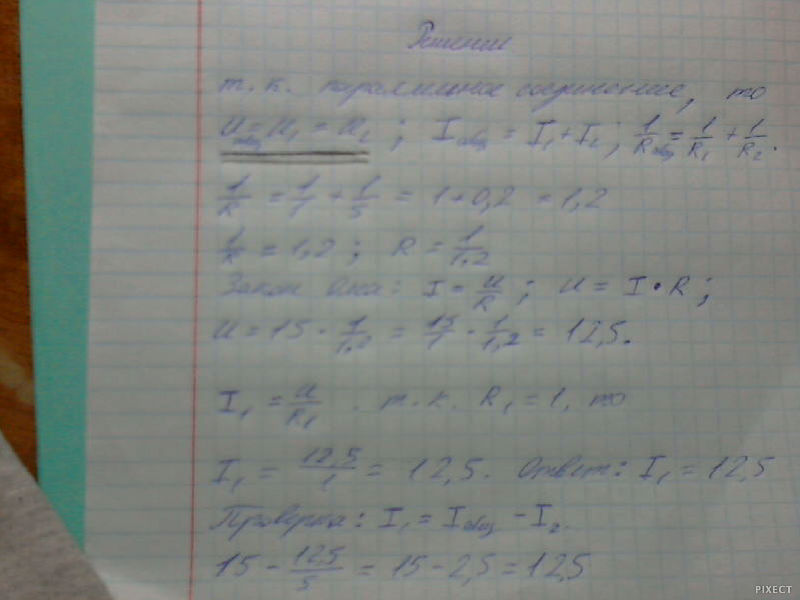 Решение
т.к. параллельное соединение, то
U общ = U₁ = U₂ ; I общ = I₁ + I₂ ; 1/R общ = 1/R₁ + 1/R₂.
1/R = 1/1 + 1/5 = 1 + 0,2 = 1,2
1/R = 1,2 ; R = 1/1,2
Закон Ома: I = U/R ; U = I • R ;
U = 15 · 1/1,2 = 15/1 · 1/1,2 = 12,5.
I₁ = U/R₁ . т.к. R₁ = 1, то
I₁ = 12,5/1 = 12,5. Ответ: I₁ = 12,5
Проверка: I₁ = I общ - I₂.
15 - 12,5/5 = 15 - 2,5 = 12,5
PIXECT